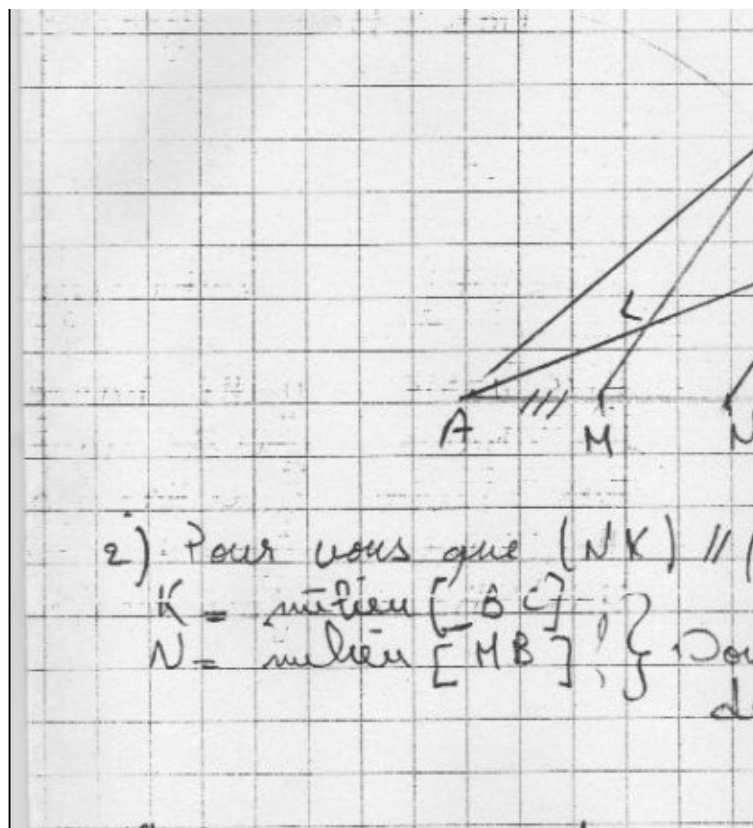 L
A M N
2) Pour vous que (NK) // (
K = milieu [BC]
N = milieu [MB] } Don
d